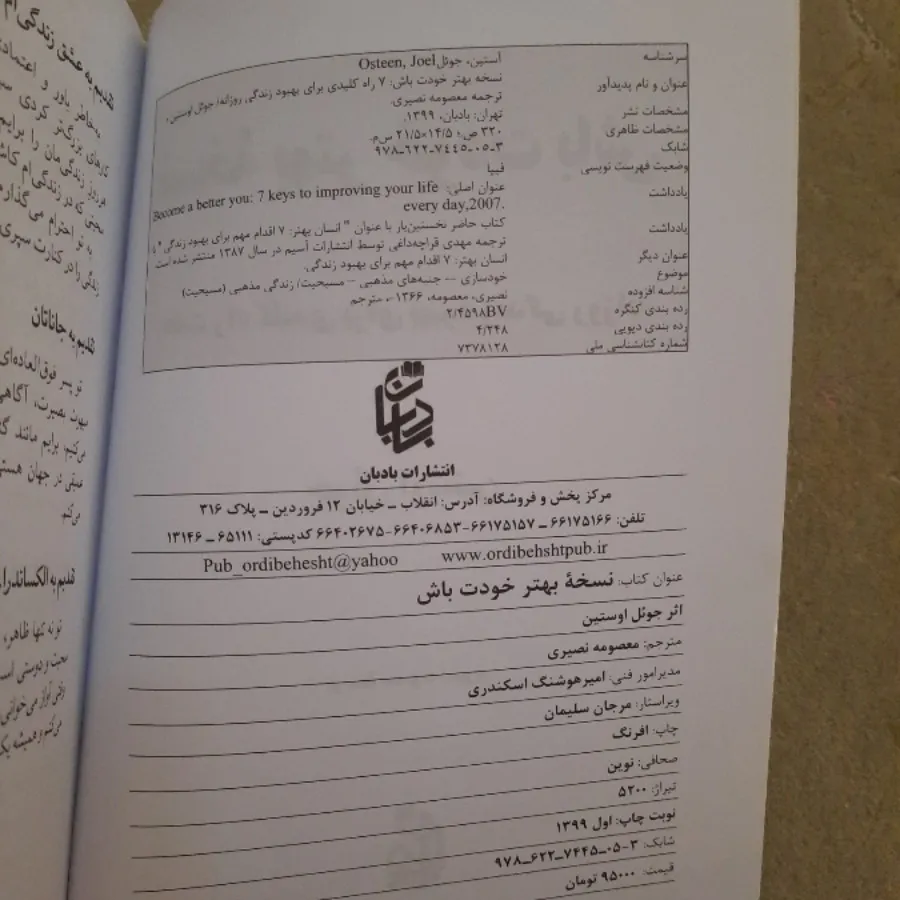 سرشناسه آستین، جوئل Osteen, Joel
عنوان و نام پدیدآور نسخه بهتر خودت باش: ۷ راه کلیدی برای بهبود زندگی روزانه/ جوئل اوستین؛
ترجمه معصومه نصیری.
مشخصات نشر تهران: بادبان، ۱۳۹۹.
مشخصات ظاهری ۳۲۰ ص؛ ۱۴/۵×۲۱/۵ س‌م.
شابک ۹۷۸-۶۲۲-۷۴۴۵-۰۵-۳
وضعیت فهرست نویسی فیپا
یادداشت عنوان اصلی: Become a better you: 7 keys to improving your life
every day,2007.
یادداشت کتاب حاضر نخستین‌بار با عنوان " انسان بهتر: ۷ اقدام مهم برای بهبود زندگی " با
ترجمه مهدی قراچه‌داغی توسط انتشارات آسیم در سال ۱۳۸۷ منتشر شده است
عنوان دیگر انسان بهتر: ۷ اقدام مهم برای بهبود زندگی.
موضوع خودسازی -- جنبه‌های مذهبی -- مسیحیت/ زندگی مذهبی (مسیحیت)
شناسه افزوده نصیری، معصومه، ۱۳۶۶-، مترجم
رده بندی کنگره ۲/۴۵۹۸BV
رده بندی دیویی ۴/۲۴۸
شماره کتابشناسی ملی ۷۳۷۸۱۲۸
بادبان
انتشارات بادبان
مرکز پخش و فروشگاه: آدرس: انقلاب – خیابان ۱۲ فروردین – پلاک ۳۱۶
تلفن: ۶۶۱۷۵۱۶۶ – ۶۶۱۷۵۱۵۷-۶۶۴۰۶۸۵۳-۶۶۴۰۲۶۷۵ کدپستی: ۶۵۱۱۱ – ۱۳۱۴۶
Pub_ordibehesht@yahoo www.ordibehshtpub.ir
عنوان کتاب: نسخهٔ بهتر خودت باش
اثر جوئل اوستین
مترجم: معصومه نصیری
مدیرامور فنی: امیرهوشنگ اسکندری
ویراستار: مرجان سلیمان
چاپ: افرنگ
صحافی: نوین
تیراژ: ۵۲۰۰
نوبت چاپ: اول ۱۳۹۹
شابک: ۳-۰۵-۷۴۴۵-۶۲۲-۹۷۸
قیمت: ۹۵۰۰۰ تومان
تقدیم به عشق زندگی‌ام
یاور و اعتمادی
کارهای بزرگ‌تر کردی
زندگی‌مان را برایم
که در زندگی‌ام
به تو احترام می‌گذارم
زندگی را در کنارت سپری
تقدیم به جاناتان
تو پسر فوق‌العاده‌ای
بصیرت، آگاهی
می‌کنیم. برایم مانند
عمیقی در جهان هستی
می‌کنم.
تقدیم به الکساندرا
تو نه تنها ظاهر،
محبت و دوستی است
وقتی آواز می‌خوانی
می‌کنم و همیشه یک